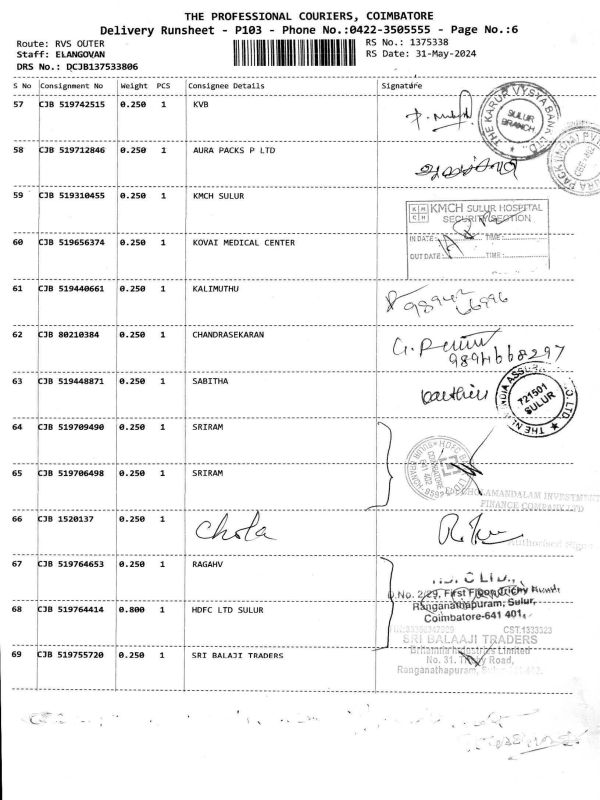 THE PROFESSIONAL COURIERS, COIMBATORE
Delivery Runsheet - P103 - Phone No.:0422-3505555 - Page No.:6
Route: RVS OUTER
Staff: ELANGOVAN
DRS No.: DCJB137533806
RS No.: 1375338
RS Date: 31-May-2024
S No Consignment No Weight PCS Consignee Details Signature
57 CJB 519742515 0.250 1 KVB
THE KARUR VYSYA BANK LTD.
SULUR
BRANCH
58 CJB 519712846 0.250 1 AURA PACKS P LTD
59 CJB 519310455 0.250 1 KMCH SULUR
KMCH SULUR HOSPITAL
SECURITY SECTION
IN DATE: TIME:
OUT DATE: TIME:
60 CJB 519656374 0.250 1 KOVAI MEDICAL CENTER
61 CJB 519440661 0.250 1 KALIMUTHU
62 CJB 80210384 0.250 1 CHANDRASEKARAN
9894668297
63 CJB 519448871 0.250 1 SABITHA
721501
SULUR
64 CJB 519709490 0.250 1 SRIRAM
65 CJB 519706498 0.250 1 SRIRAM
CHOLAMANDALAM INVESTMENT
FINANCE COMPANY LTD
66 CJB 1520137 0.250 1 Chola
Authorised
67 CJB 519764653 0.250 1 RAGAHV
D.No. 2/29, First Floor, Trichy
Ranganathapuram, Sulur,
Coimbatore-641 401.
68 CJB 519764414 0.800 1 HDFC LTD SULUR
CST:1333323
SRI BALAAJI TRADERS
Britannia Industries Limited
No. 31, Trichy Road,
Ranganathapuram,
69 CJB 519755720 0.250 1 SRI BALAJI TRADERS